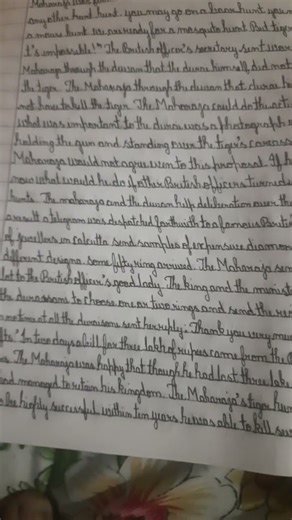 any other hunt. you may go on a boar hunt. you m
a mouse hunt. we are ready for a mosquito hunt. But tiger
It's impossible!" The British officer's secretary sent word
Maharaja through the dewan that the durai himself did not
the tiger. The Maharaja through the dewan that durai hi
not have to kill the tiger. The Maharaja could do the act
what was important to the durai was a photograph o
holding the gun and standing over the tiger's carcass
Maharaja would not agree even to this proposal. If he
now what would he do if other British officers turned u
hunts. The maharaja and the dewan held deliberation over th
a result a telegram was despatched forthwith to a famous British
of jewellers in calcutta send samples of expensive diamon
different designs. some fifty rings arrived. The Maharaja sen
lot to the British officer's good lady. The king and the minist
the duraisani to choose one or two rings and send the res
no time at all the duraisani sent her reply: Thank you very muc
fts. "In two days a bill for three lakh of rupees came from the B
rs. The Maharaja was happy that though he had lost three lakh
and managed to retain his kingdom. The Maharaja's tiger hun
to be highly successful. within ten years he was able to kill sev